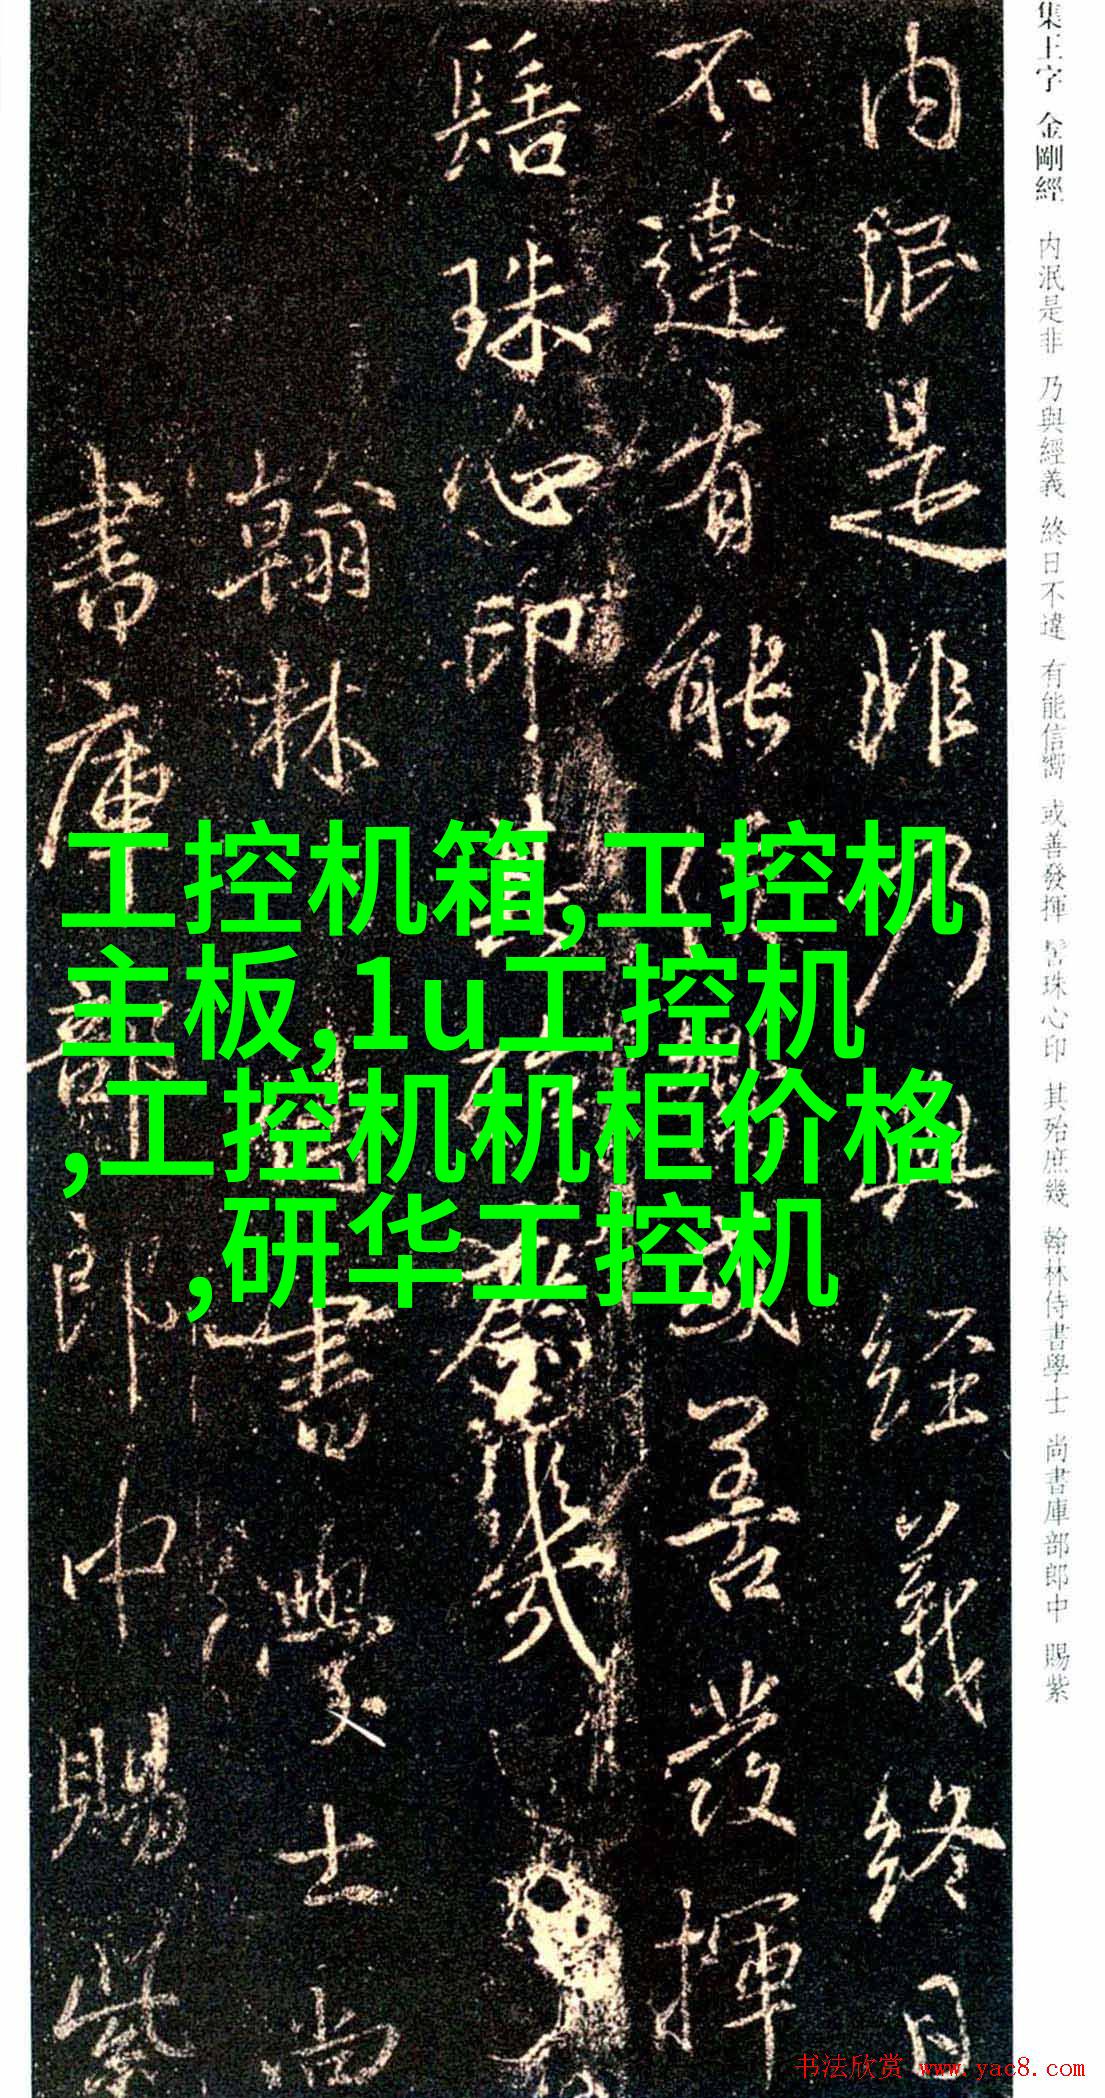 集王字 金剛經 內泯是非 乃與經義 終日不違 有能信嚮 或善發揮 髻珠心印 其殆庶幾 翰林侍書學士 尚書庫部郎中 賜紫
內泯是非乃與經義終日
不違有能 或善發揮
髻珠心印其殆庶幾
翰林 書學士尚
書庫部郎中賜紫
工控机箱,工控机
主板,1u工控机
,工控机机柜价格
,研华工控机
书法欣赏 www.yac8.com